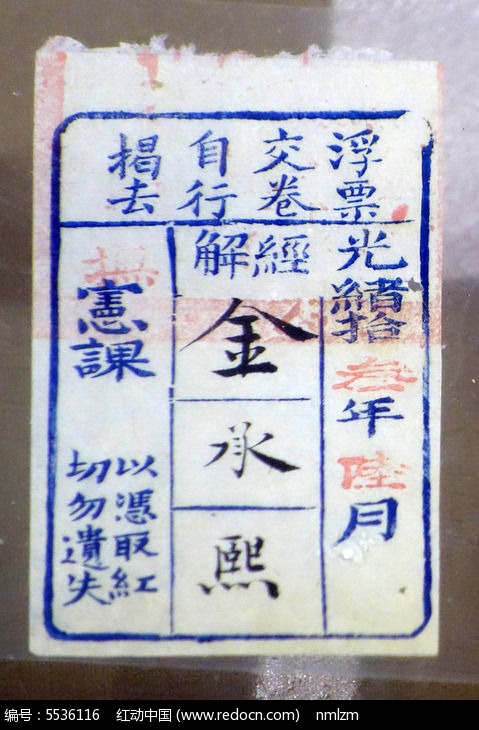 浮票
交卷
自行
揭去
光緒拾叁年陸月
經解
金承熙
撫憲課
以憑取紅
切勿遺失
编号：5536116 红动中国 (www.redocn.com) nmlzm